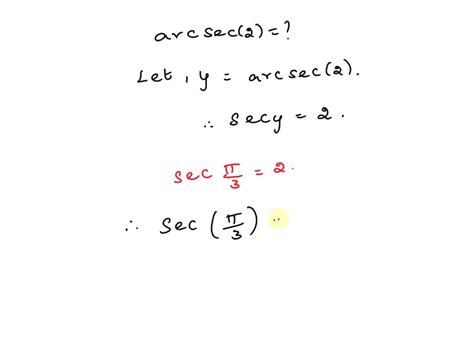 arcsec(2)=?
Let, y = arcsec(2).
∴ secy = 2.
sec π/3 = 2.
∴ sec (π/3)